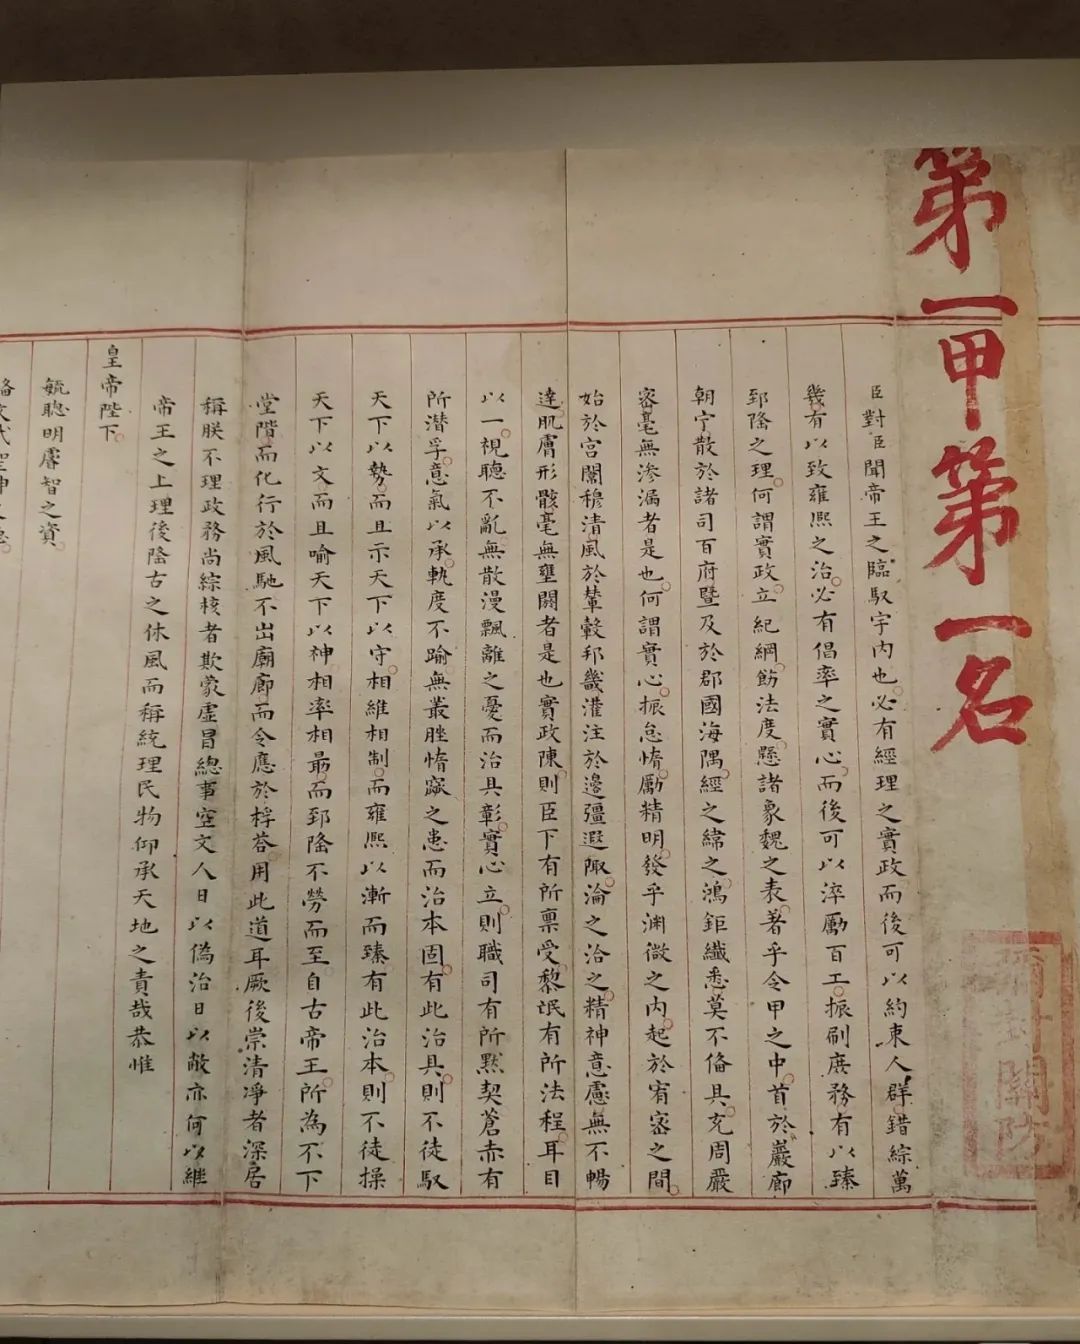 第一甲第一名
彌封關防
臣對臣聞帝王之臨馭宇內也必有經理之實政而後可以約束人群錯綜萬
幾有以致雍熙之治必有倡率之實心而後可以淬勵百工振刷庶務有以臻
郅隆之理何謂實政立紀綱飭法度懸諸象魏之表著乎令甲之中首於巖廊
朝宁散於諸司百府暨及於郡國海隅經之緯之鴻鉅纖悉莫不備具充周嚴
密毫無滲漏者是也何謂實心振怠惰勵精明發乎淵微之內起於宥密之間
始於宮闈穆清風於輦轂邦畿灌注於邊疆遐陬淪之洽之精神意慮無不暢
達肌膚形骸毫無壅閼者是也實政陳則臣下有所稟受黎氓有所法程耳目
以一視聽不亂無散漫飄離之憂而治具彰實心立則職司有所默契蒼赤有
所潛孚意氣以承軌度不踰無叢脞惰窳之患而治本固有此治具則不徒馭
天下以勢而且示天下以守相維相制而雍熙以漸而臻有此治本則不徒操
天下以文而且喻天下以神相率相最而郅隆不勞而至自古帝王所為不下
堂階而化行於風馳不出廟廊而令應於桴荅用此道耳厥後崇清凈者深居
稱朕不理政務尚綜核者欺蒙虛冒總事空文人日以偽治日以敝亦何以繼
帝王之上理後隆古之休風而稱統理民物仰承天地之責哉恭惟
皇帝陛下
毓聰明睿智之資